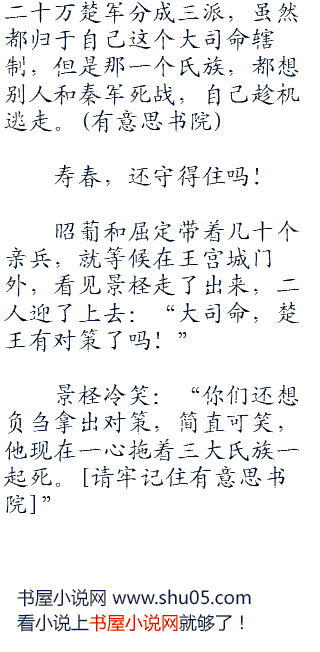 二十万楚军分成三派，虽然
都归于自己这个大司命辖
制，但是那一个氏族，都想
别人和秦军死战，自己趁机
逃走。(有意思书院)
寿春，还守得住吗！
昭萄和屈定带着几十个
亲兵，就等候在王宫城门
外，看见景柽走了出来，二
人迎了上去：“大司命，楚
王有对策了吗！”
景柽冷笑：“你们还想
负刍拿出对策，简直可笑，
他现在一心拖着三大氏族一
起死。[请牢记住有意思书
院]”
书屋小说网 www.shu05.com
看小说上书屋小说网就够了！